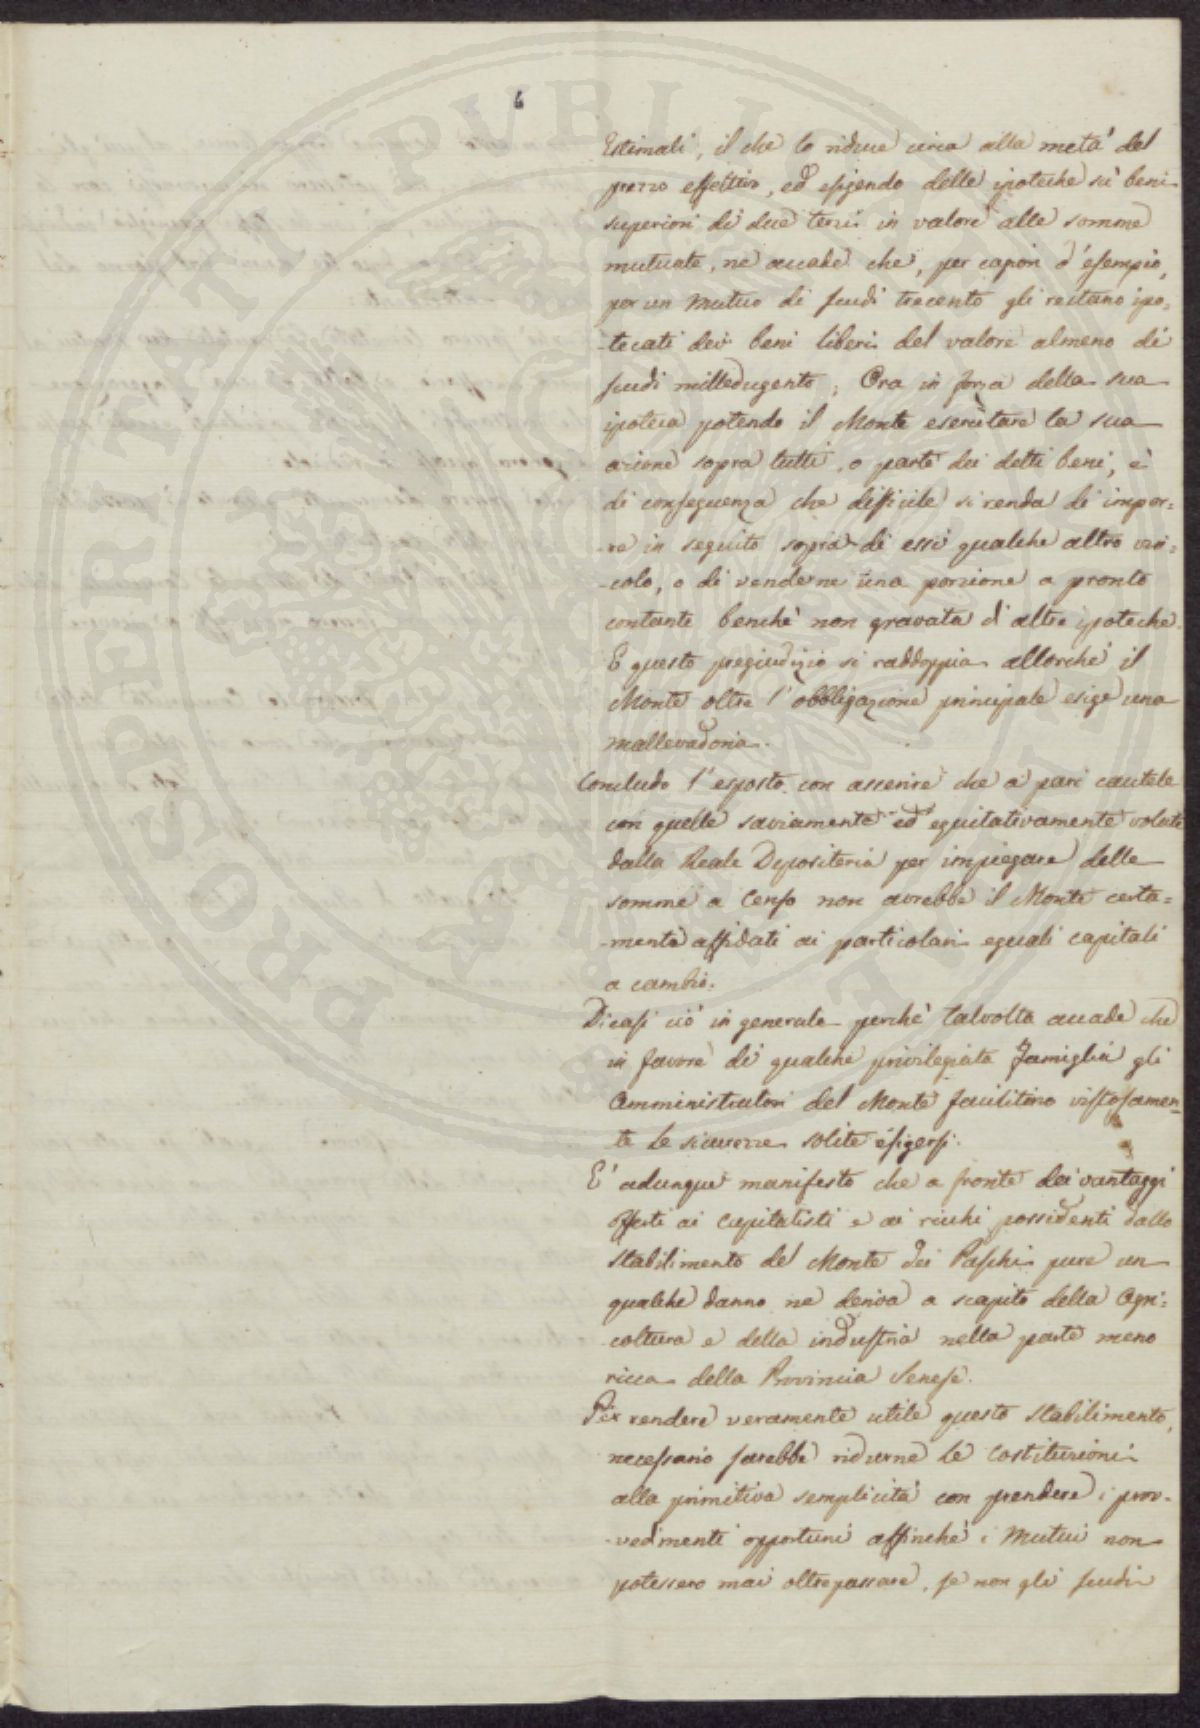 6
Estimali, il che lo riduce circa alla metà del
prezzo effettivo, ed esigendo delle ipoteche sù beni
superiori di due terzi in valore alle somme
mutuate, ne accade che, per capion d'esempio,
per un Mutuo di scudi trecento gli restano ipo=
-tecati dei beni liberi del valore almeno di
scudi milledugento; Ora in forza della sua
ipoteca potendo il Monte esercitare la sua
azione sopra tutti, o parte dei detti beni, è
di conseguenza che difficile si renda di impor=
-re in seguito sopra di essi qualche altro vin=
-colo, o di venderne una porzione a pronto
contante benchè non gravata d'altre ipoteche.
E questo pregiudizio si raddoppia allorchè il
Monte oltre l'obbligazione principale esige una
mallevadoria.
Concludo l'esposto con asserire che a pari cautele
con quelle saviamente ed equitativamente volute
dalla Reale Depositeria per impiegare delle
somme a Censo non avrebbe il Monte certa=
-mente affidati ai particolari eguali capitali
a cambio.
Dicasi ciò in generale perchè talvolta accade che
in favore di qualche privilegiata famiglia gli
Amministratori del Monte facilitino vistosamen=
te le sicurezze solite esigersi.
E' adunque manifesto che a fronte dei vantaggi
offerti ai Capitalisti e ai ricchi possidenti dallo
stabilimento del Monte dei Paschi pure un
qualche danno ne deriva a scapito della Agri=
-coltura e della industria nella parte meno
ricca della Provincia Senese.
Per rendere veramente utile questo stabilimento,
necessario sarebbe ridurne le Costituzioni
alla primitiva semplicità con prendere i prov-
-vedimenti opportuni affinchè i Mutui non
potessero mai oltrepassare, se non gli scudi
PROSPERITATI PVBLICAE